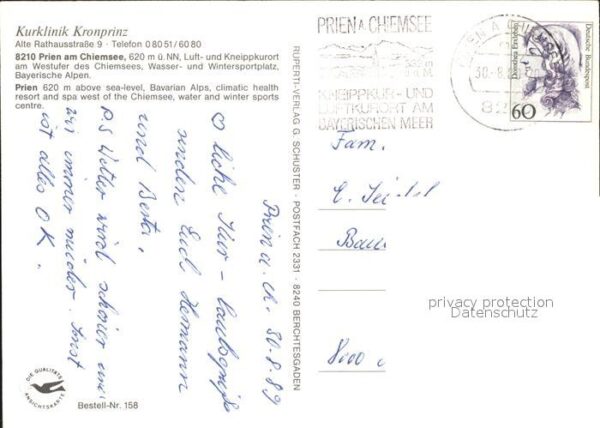 Kurklinik Kronprinz
Alte Rathausstraße 9 · Telefon 0 80 51 / 60 80
8210 Prien am Chiemsee, 620 m ü. NN, Luft- und Kneippkurort
am Westufer des Chiemsees; Wasser- und Wintersportplatz,
Bayerische Alpen.
Prien 620 m above sea-level, Bavarian Alps, climatic health
resort and spa west of the Chiemsee, water and winter sports
centre.
Prien a. Ch. 30.8.89
liebe
senden Euch Hermann
und Berta.
PS Wetter wird schöner wir
wir immer müder. Sonst
ist alles O K.
DIE QUALITÄTS
ANSICHTSKARTE
Bestell-Nr. 158
RUPERTI-VERLAG G. SCHUSTER · POSTFACH 2331 · 8240 BERCHTESGADEN
PRIEN A. CHIEMSEE
KNEIPPKUR- UND
LUFTKURORT AM
BAYERISCHEN MEER
PRIEN A. CHIEMSEE
30.-8.
82
Deutsche Bundespost
Dorothea Erxleben
60
Fam.
8000
privacy protection
Datenschutz